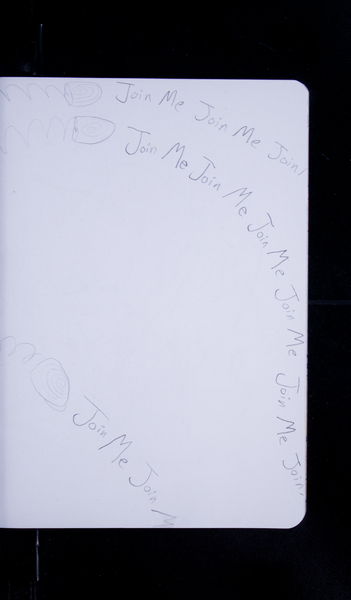 Join Me Join Me Join
Join Me Join Me Join Me Join Me Join Me Join
Join Me Join